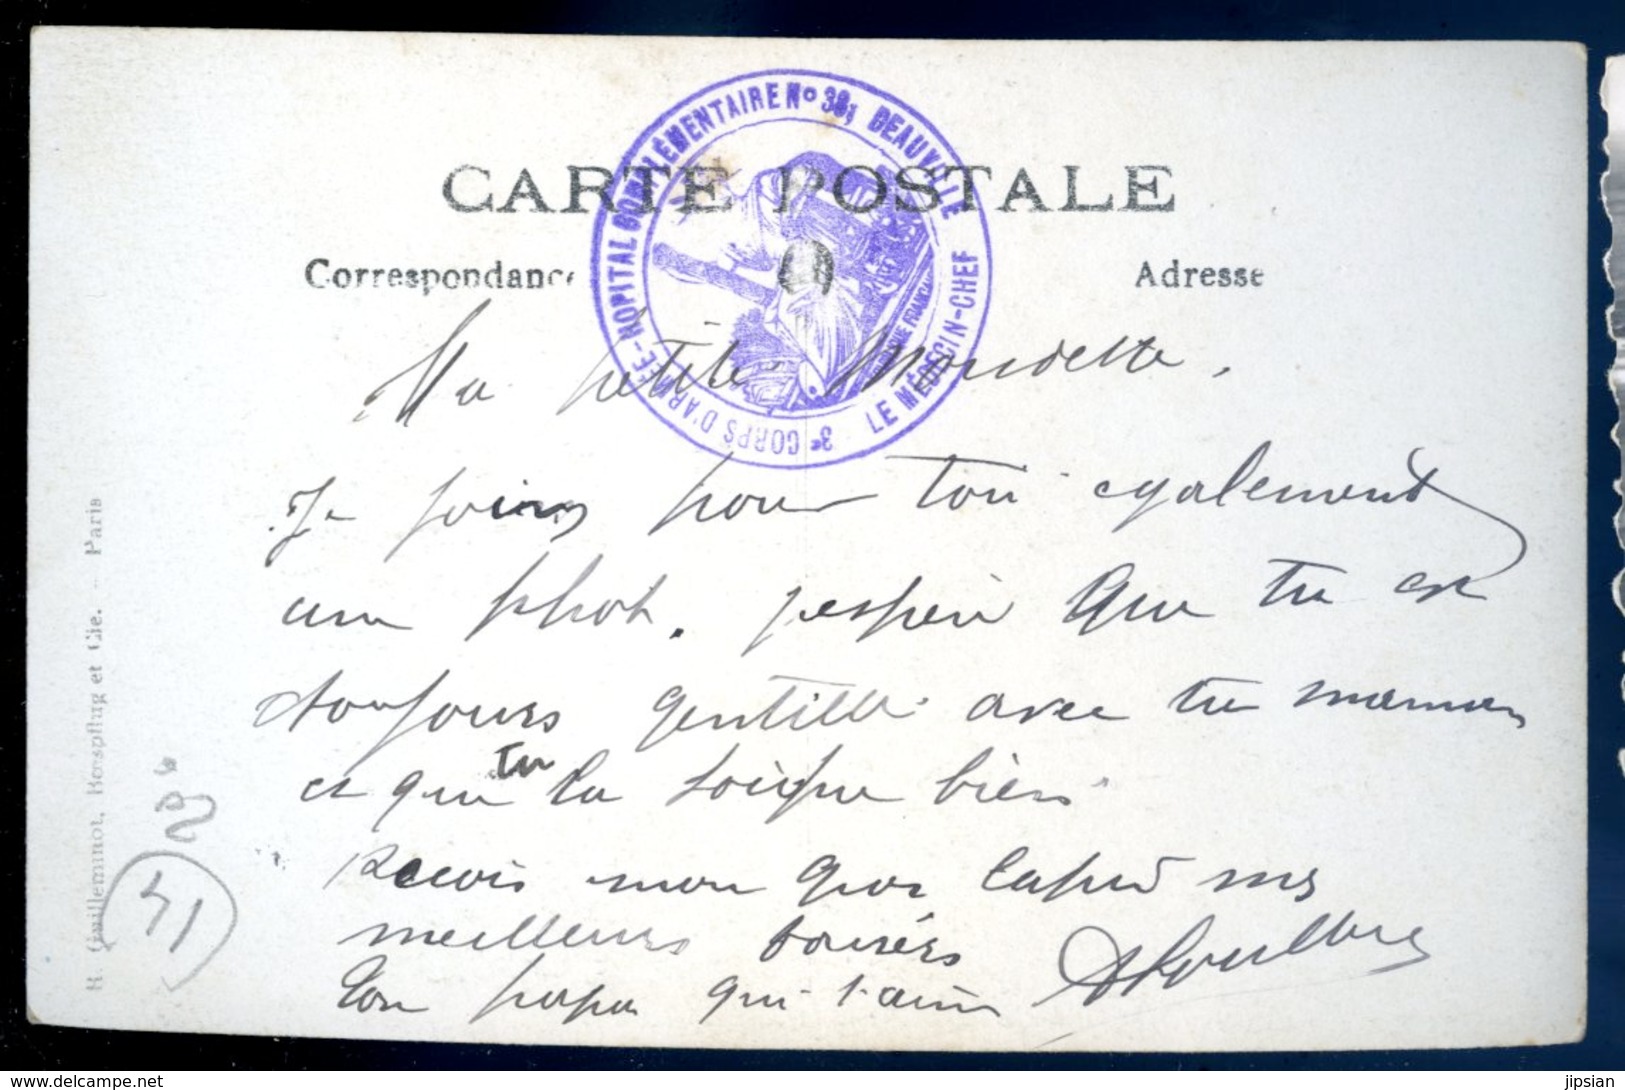 3e CORPS D'ARMÉE - HOPITAL COMPLÉMENTAIRE No 39, DEAUVILLE
LE MÉDECIN-CHEF
CARTE POSTALE
Correspondance
Adresse
Ma petite
Je joins pour toi egalement
une phot. j'espère que tu est
toujours gentille avec tu maman
et que tu la soigne bien
recois mon gros lapin mes
meilleurs baisers
Ton papa qui t'aime
R. Guilleminot, Bœspflug et Cie. - Paris
41
jipsian